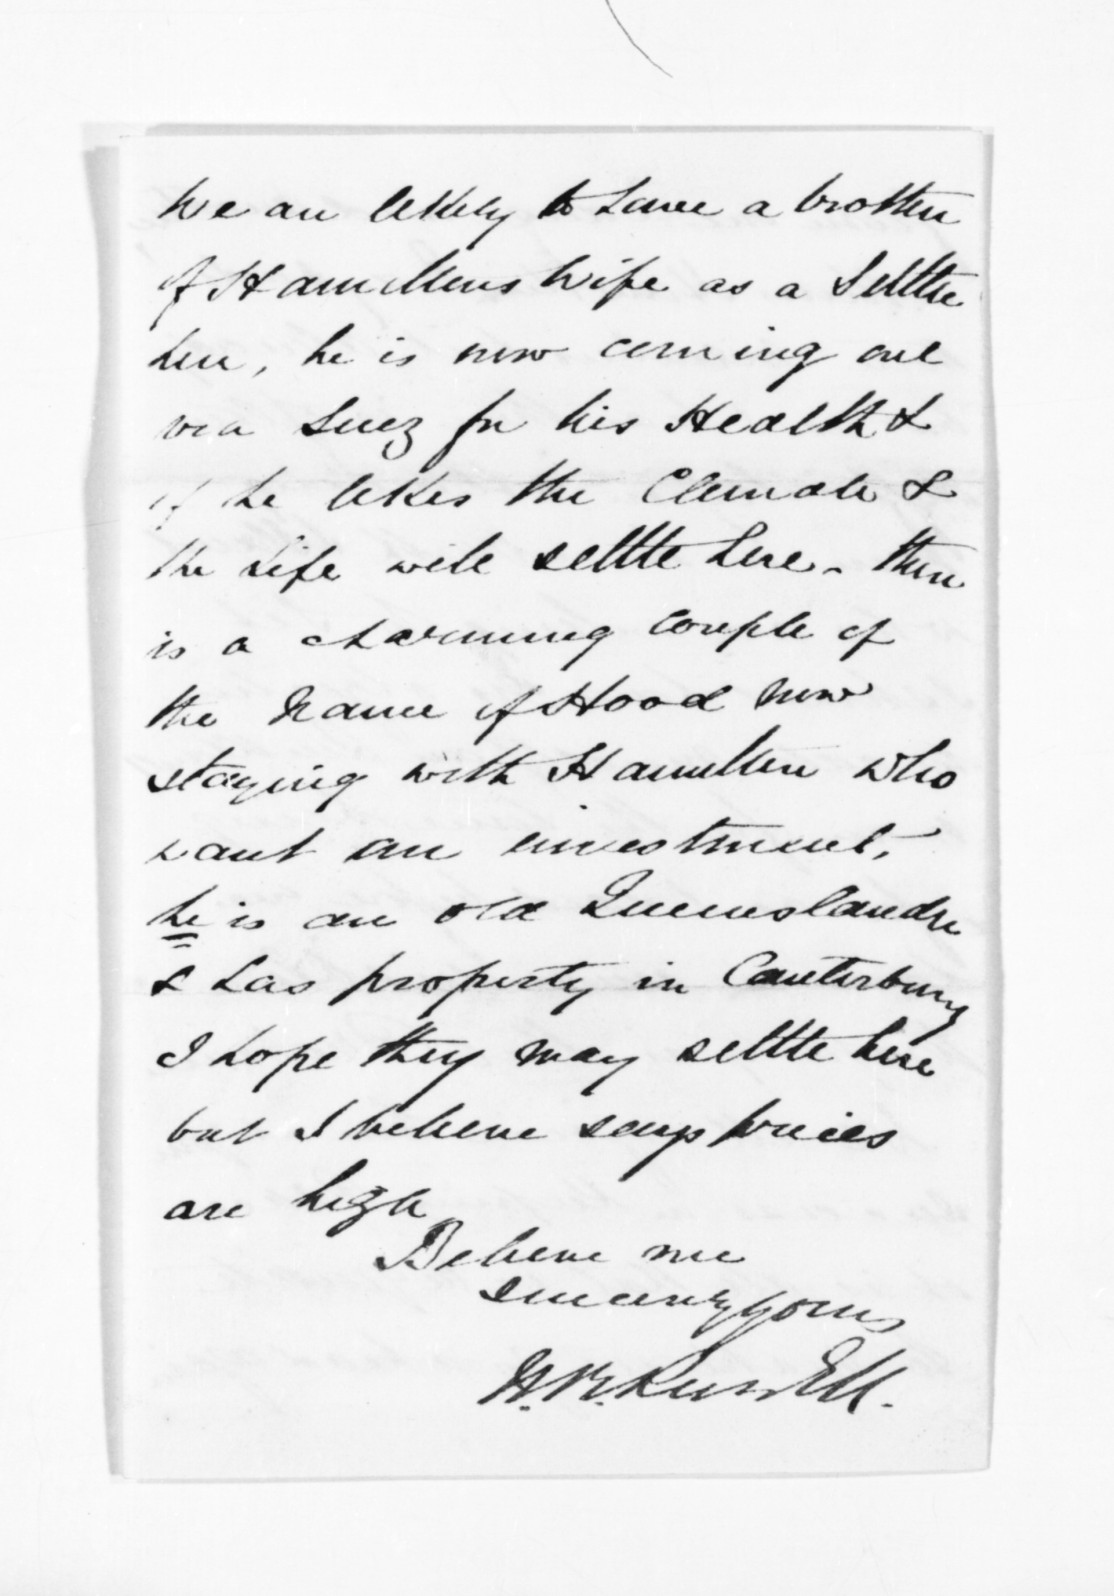 We are likely to have a brother
of Hamiltons wife as a Settler
here, he is now coming out
via Suez for his Health &
if he likes the Climate &
the life will settle here - there
is a charming couple of
the Name of Hood now
staying with Hamilton who
want an investment,
he is an old Queenslander
& has property in Canterbury
I hope they may settle here
but I believe says prices
are high
Believe me
sincerely yours
H. R. Russell.